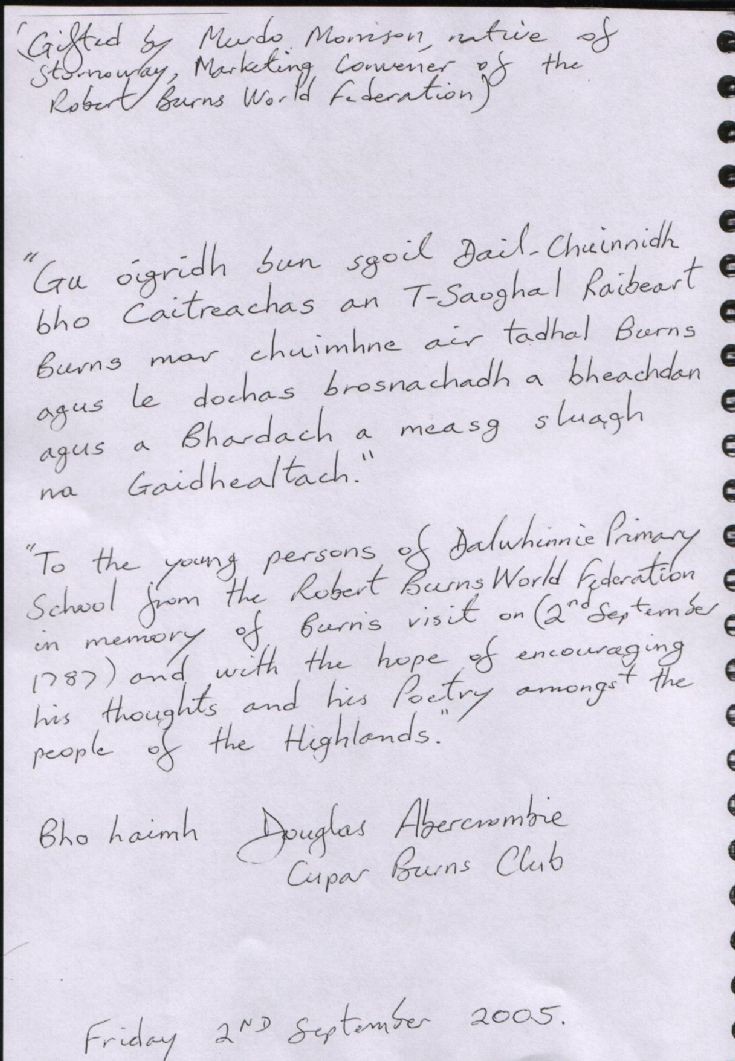 (Gifted by Murdo Morrison, native of
Stornoway, Marketing Convener of the
Robert Burns World Federation)
"Gu óigridh bun sgoil Dail-Chuinnidh
bho Caitreachas an T-Saoghal Raibeart
Burns mar chuimhne air tadhal Burns
agus le dochas brosnachadh a bheachdan
agus a Bhardach a measg sluagh
na Gaidhealtach."
"To the young persons of Dalwhinnie Primary
School from the Robert Burns World Federation
in memory of Burns visit on (2nd September
1787) and with the hope of encouraging
his thoughts and his Poetry amongst the
people of the Highlands."
Bho haimh Douglas Abercrombie
Cupar Burns Club
Friday 2ND September 2005.